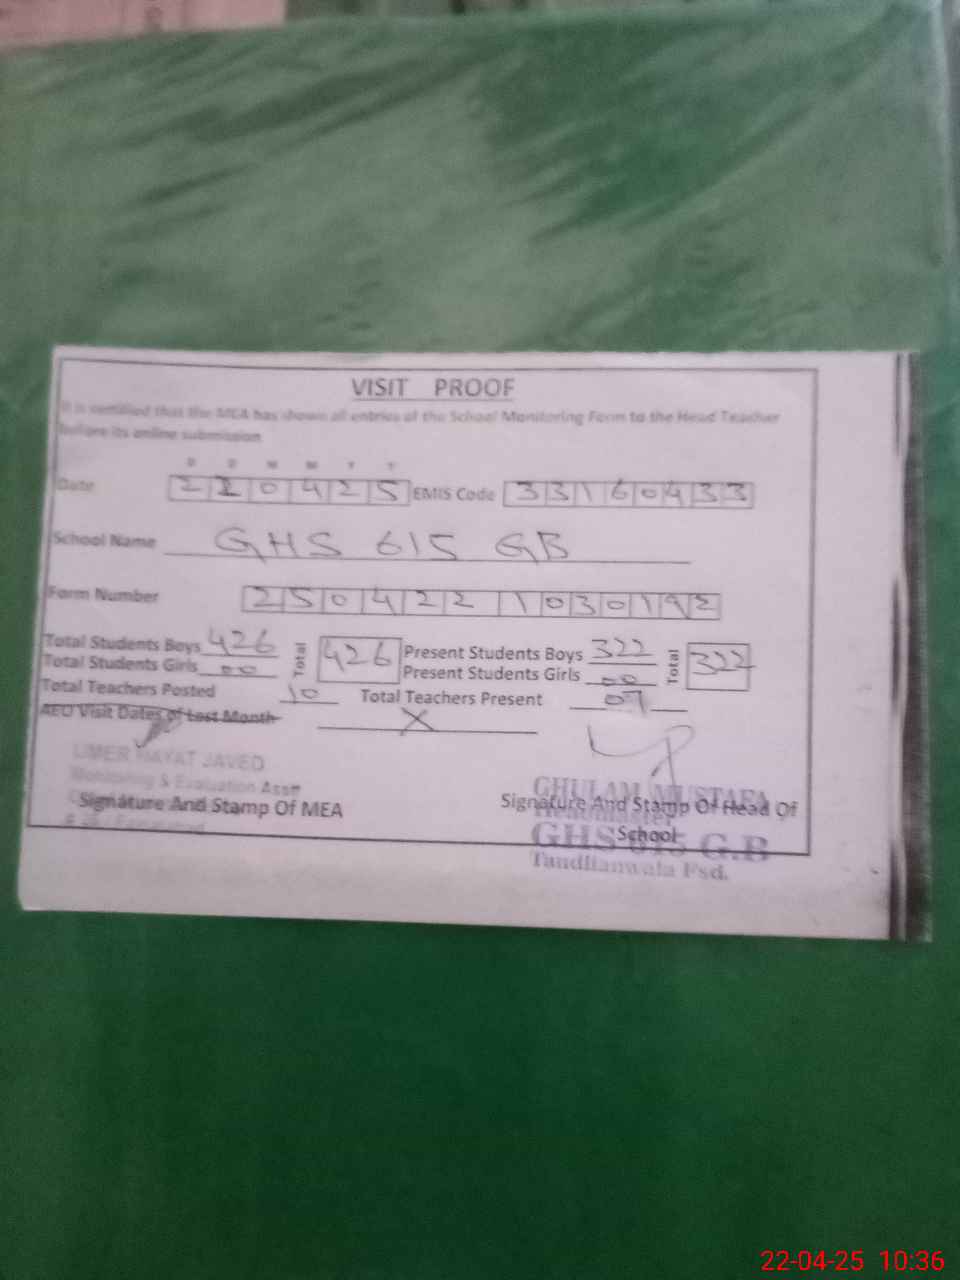 VISIT PROOF
It is certified that the MEA has shown all entries of the School Monitoring Form to the Head Teacher
before its online submission
D D M M Y Y
Date 220425 EMIS Code 33160433
School Name GHS 615 GB
Form Number 250422 1030192
Total Students Boys 426 Total 426 Present Students Boys 322 Total 322
Total Students Girls 00 Present Students Girls 00
Total Teachers Posted 10 Total Teachers Present 07
AEO Visit Dates of Last Month X
UMER HAYAT JAVED
Monitoring & Evaluation Asstt
Signature And Stamp Of MEA
GHULAM MUSTAFA
Signature And Stamp Of Head Of
Headmaster
School
GHS 615 G.B
Tandlianwala Fsd.
22-04-25 10:36